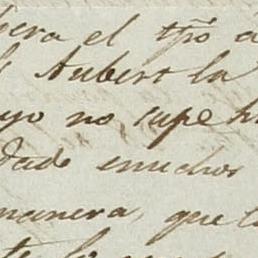 hera el tpõ a
Aubert la
yo no supe h
dado muchos
manera, que l